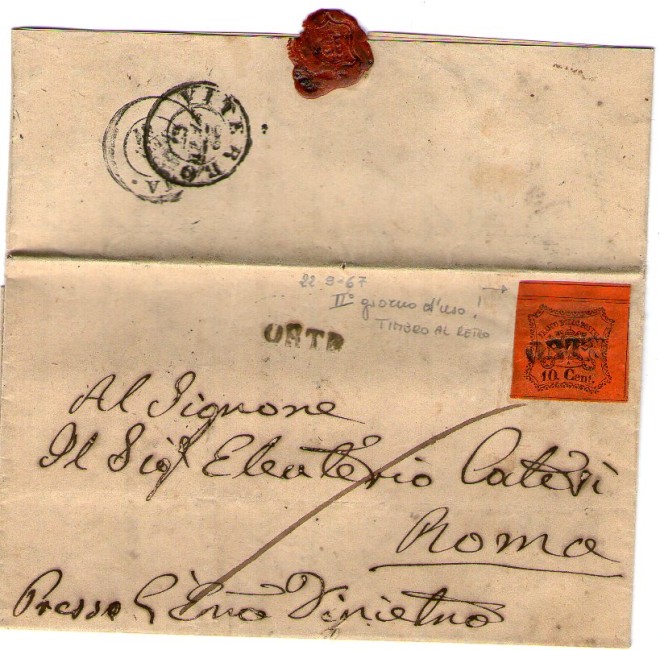 VITERBO
22-9-67
II° giorno d'uso!
TIMBRO AL RETRO
ORTE
ORTE
10. Cent.
Al Signore
Il Sig Eleuterio Catesi
Roma
Presso